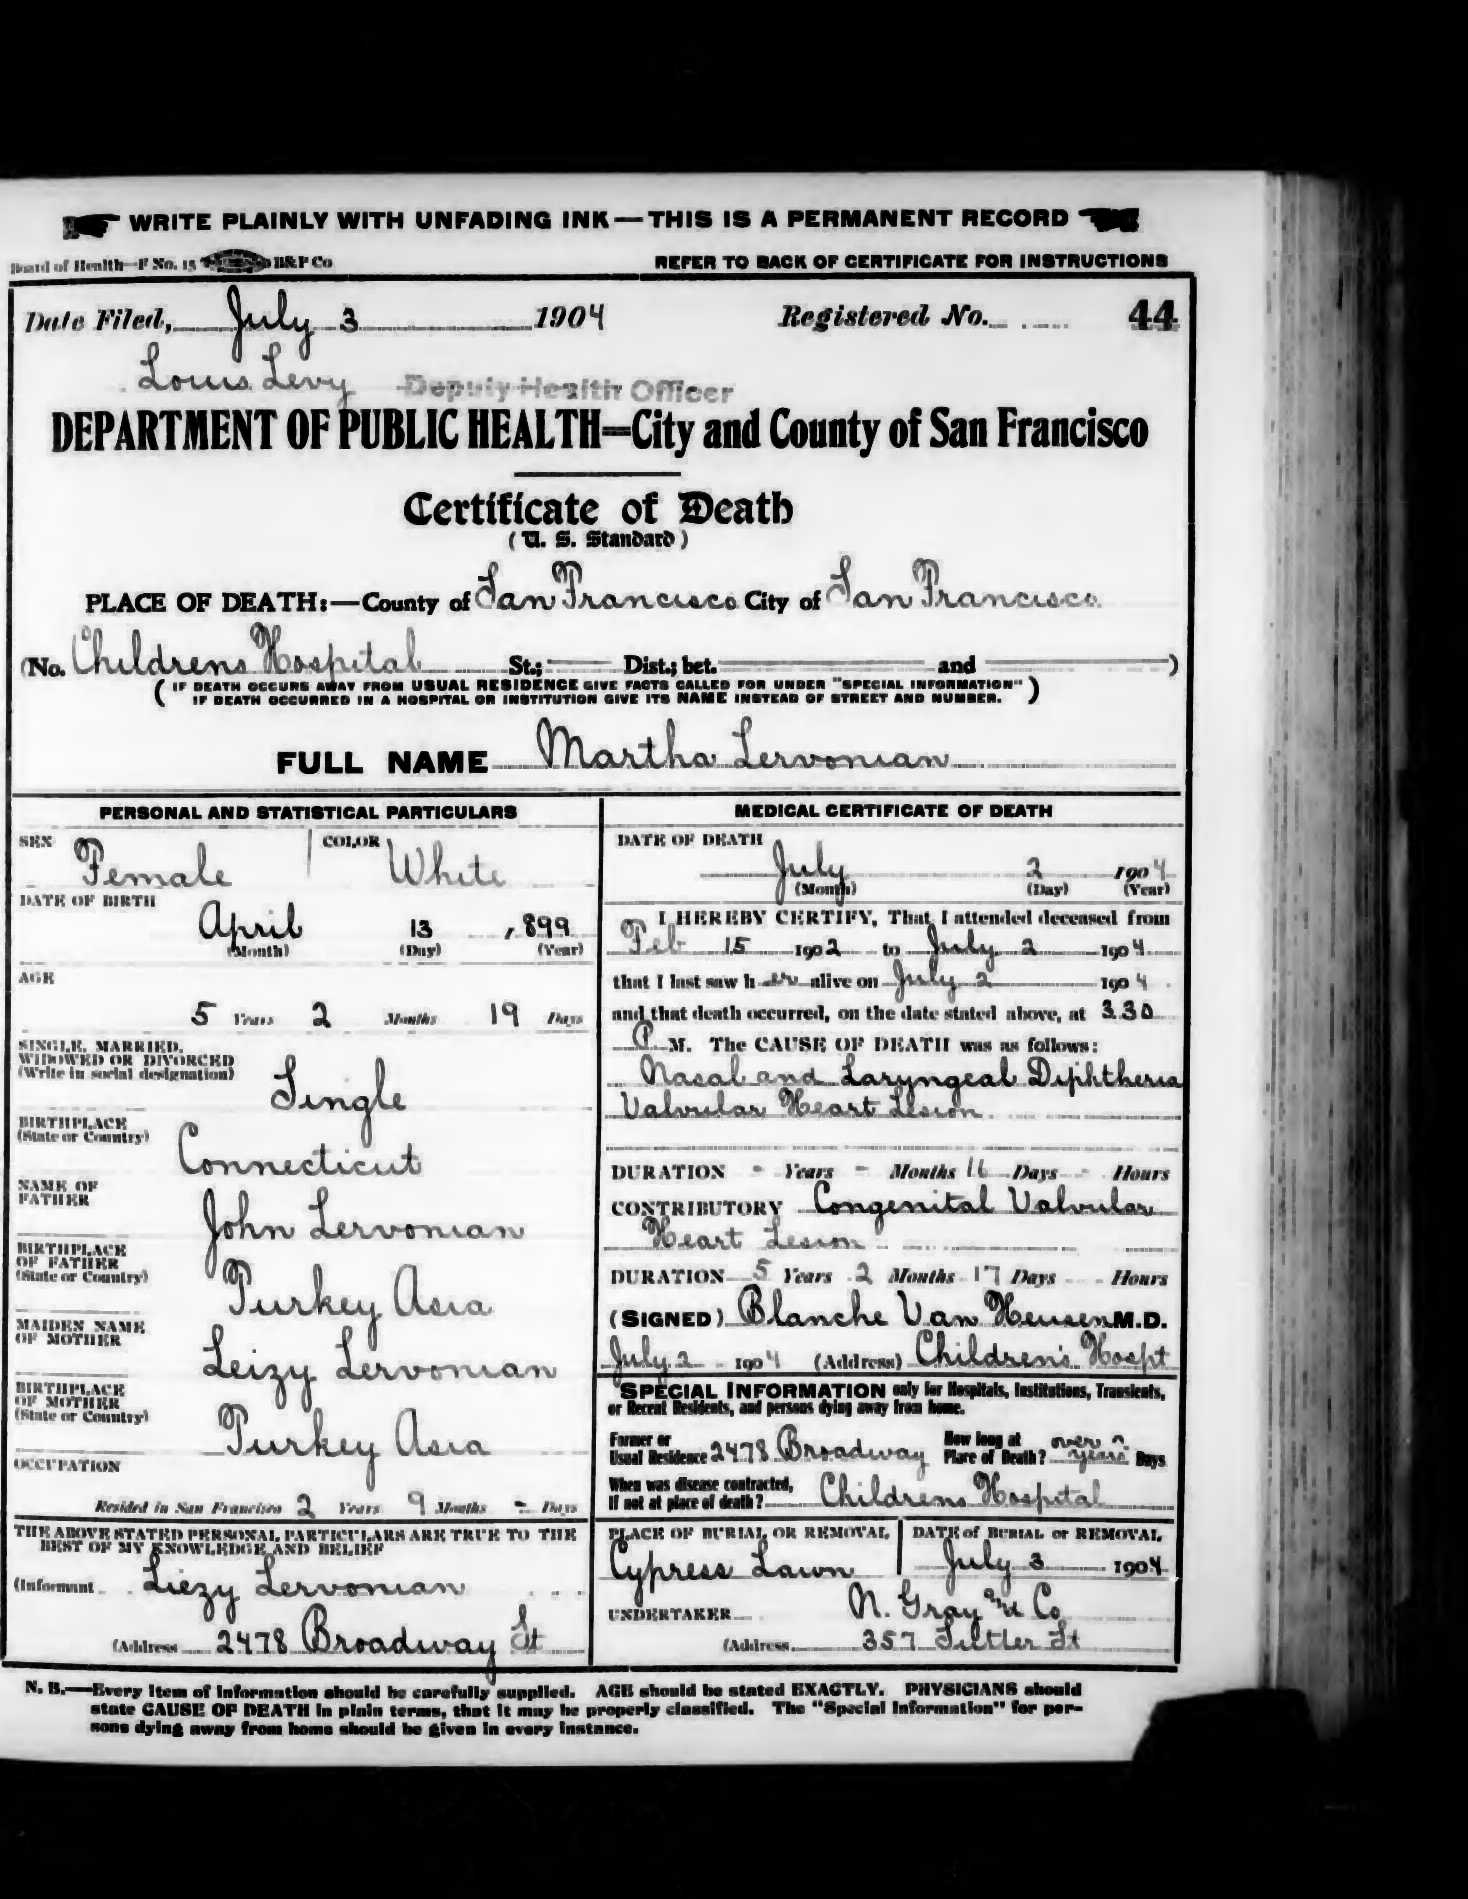 WRITE PLAINLY WITH UNFADING INK — THIS IS A PERMANENT RECORD
Board of Health—F No. 15 H&P Co REFER TO BACK OF CERTIFICATE FOR INSTRUCTIONS
Date Filed, July 3 1904 Registered No. 44
Louis Levy Deputy Health Officer
DEPARTMENT OF PUBLIC HEALTH=City and County of San Francisco
Certificate of Death
( U. S. Standard )
PLACE OF DEATH:—County of San Francisco City of San Francisco
(No. Childrens Hospital St.; Dist.; bet. and )
( IF DEATH OCCURS AWAY FROM USUAL RESIDENCE GIVE FACTS CALLED FOR UNDER "SPECIAL INFORMATION" )
IF DEATH OCCURRED IN A HOSPITAL OR INSTITUTION GIVE ITS NAME INSTEAD OF STREET AND NUMBER.
FULL NAME Martha Lervonian
PERSONAL AND STATISTICAL PARTICULARS
SEX Female COLOR White
DATE OF BIRTH
April 13 , 899
(Month) (Day) (Year)
AGE
5 Years 2 Months 19 Days
SINGLE, MARRIED,
WIDOWED OR DIVORCED
(Write in social designation)
Single
BIRTHPLACE
(State or Country)
Connecticut
NAME OF
FATHER
John Lervonian
BIRTHPLACE
OF FATHER
(State or Country)
Turkey Asia
MAIDEN NAME
OF MOTHER
Leizy Lervonian
BIRTHPLACE
OF MOTHER
(State or Country)
Turkey Asia
OCCUPATION
Resided in San Francisco 2 Years 9 Months - Days
THE ABOVE STATED PERSONAL PARTICULARS ARE TRUE TO THE
BEST OF MY KNOWLEDGE AND BELIEF
(Informant Liezy Lervonian
(Address 2478 Broadway St
MEDICAL CERTIFICATE OF DEATH
DATE OF DEATH
July 2 1904
(Month) (Day) (Year)
I HEREBY CERTIFY, That I attended deceased from
Feb 15 1902 to July 2 1904
that I last saw h er alive on July 2 1904
and that death occurred, on the date stated above, at 3.30
P M. The CAUSE OF DEATH was as follows:
Nasal and Laryngeal Diphtheria
Valvular Heart Lesion
DURATION - Years - Months 11 Days - Hours
CONTRIBUTORY Congenital Valvular
Heart Lesion
DURATION 5 Years 2 Months 17 Days Hours
(SIGNED) Blanche Van Heusen M.D.
July 2 1904 (Address) Children's Hospt
SPECIAL INFORMATION only for Hospitals, Institutions, Transients,
or Recent Residents, and persons dying away from home.
Former or
Usual Residence 2478 Broadway
How long at
Place of Death? over years Days
When was disease contracted,
If not at place of death? Childrens Hospital
PLACE OF BURIAL OR REMOVAL
Cypress Lawn
DATE of BURIAL or REMOVAL
July 3 1904
UNDERTAKER N. Gray and Co
(Address 357 Sutter St
N. B.—Every item of information should be carefully supplied. AGE should be stated EXACTLY. PHYSICIANS should
state CAUSE OF DEATH in plain terms, that it may be properly classified. The "Special Information" for per-
sons dying away from home should be given in every instance.